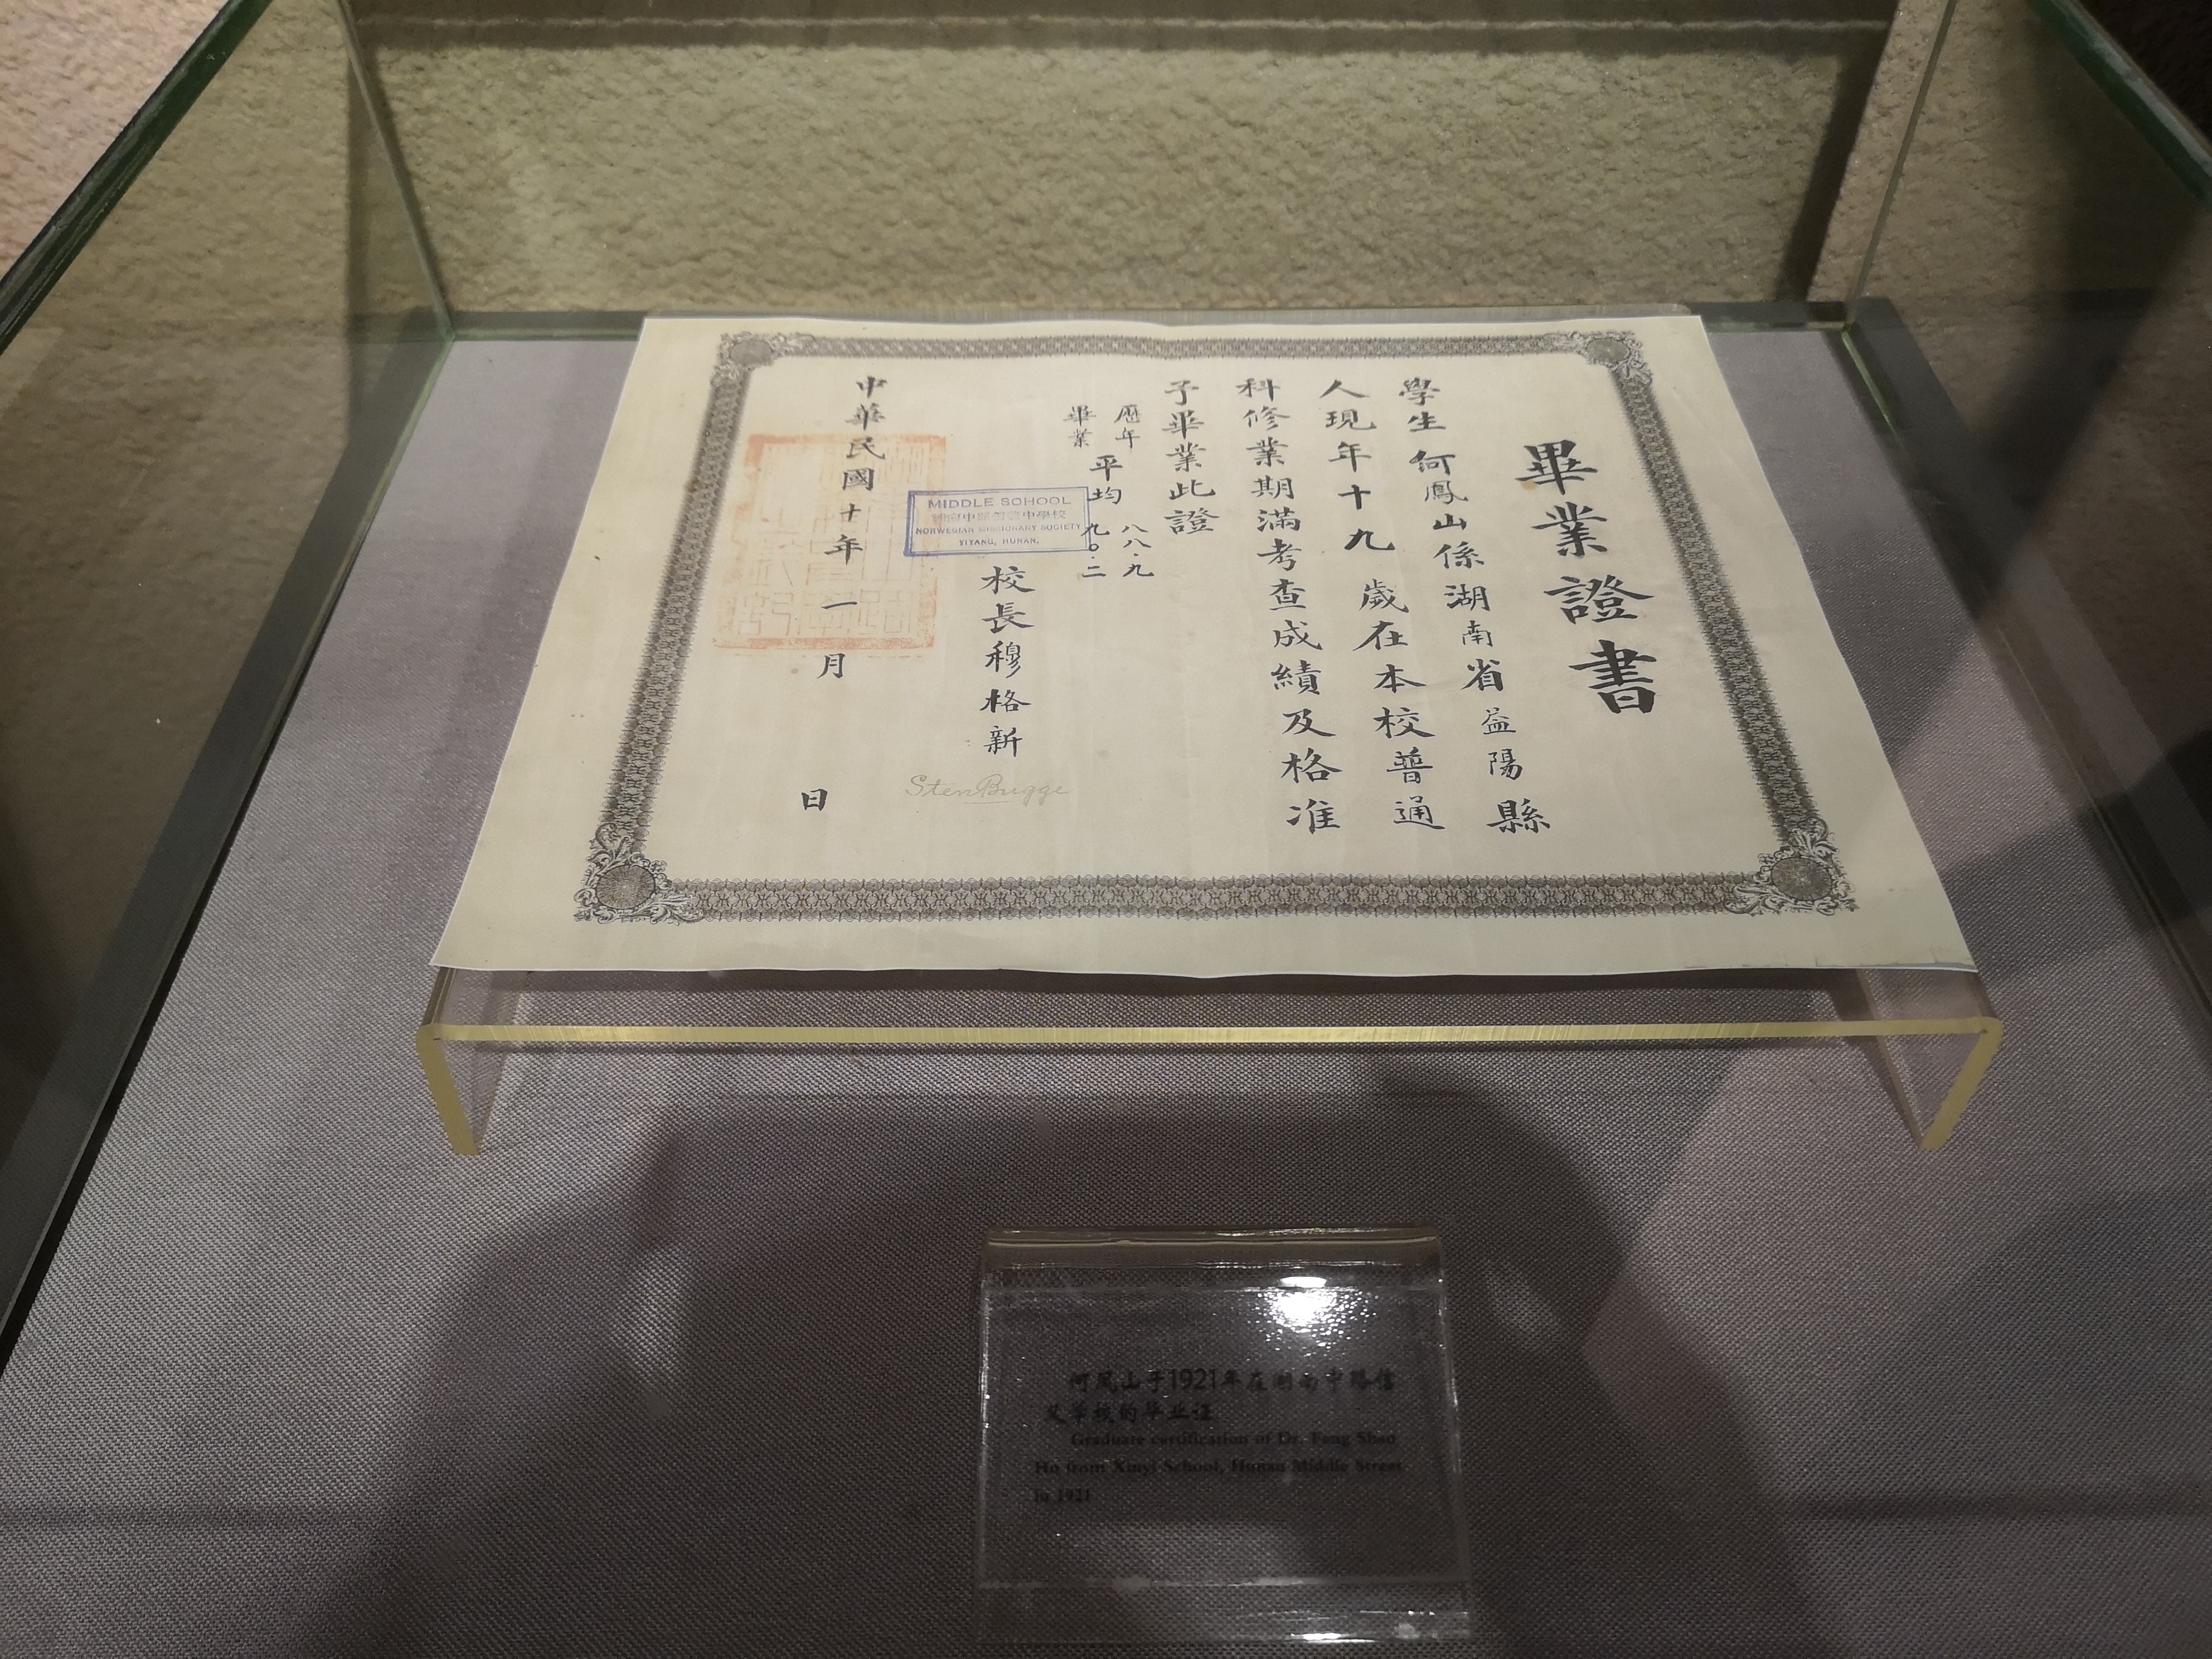 畢業證書
學生何鳳山係湖南省益陽縣
人現年十九歲在本校普通
科修業期滿考查成績及格准
予畢業此證
歷年
畢業
平均
八八.九
九〇.二
MIDDLE SCHOOL
NORWEGIAN MISSIONARY SOCIETY
YIYANG, HUNAN.
校長穆格新
Sten Bugge
中華民國十年一月 日
何凤山于1921年在湖南中路信
义学校的毕业证
Graduate certification of Dr. Feng Shan
Ho from Xinyi School, Hunan Middle Street
in 1921